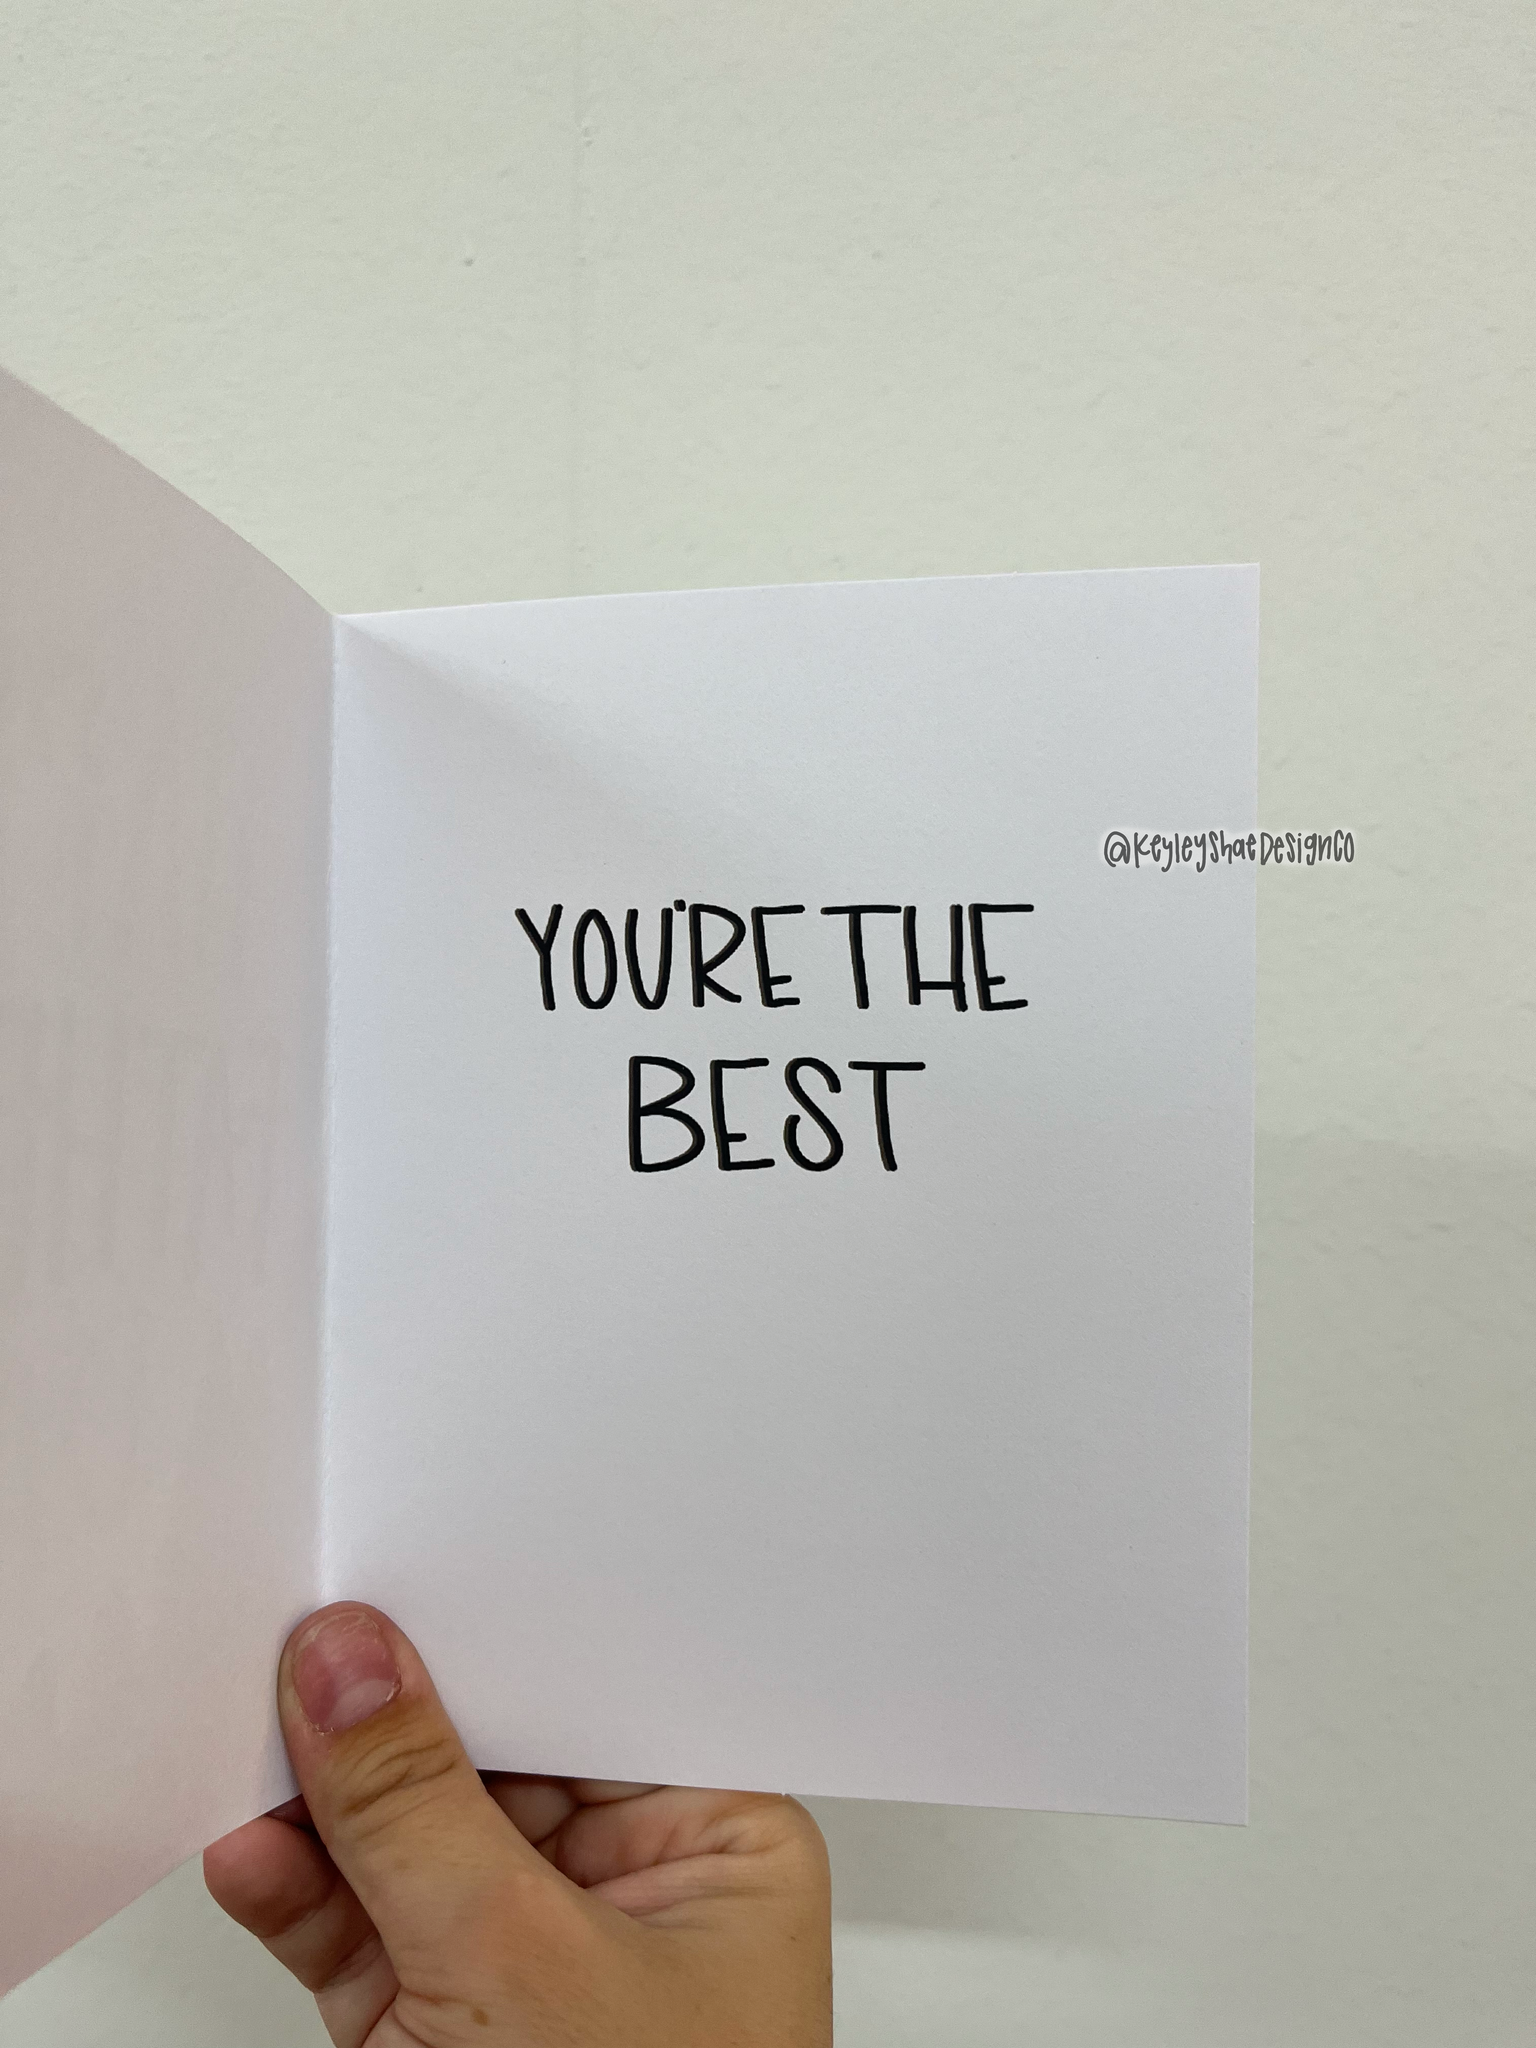 @KeyleyShaeDesignCo
YOU'RE THE
BEST